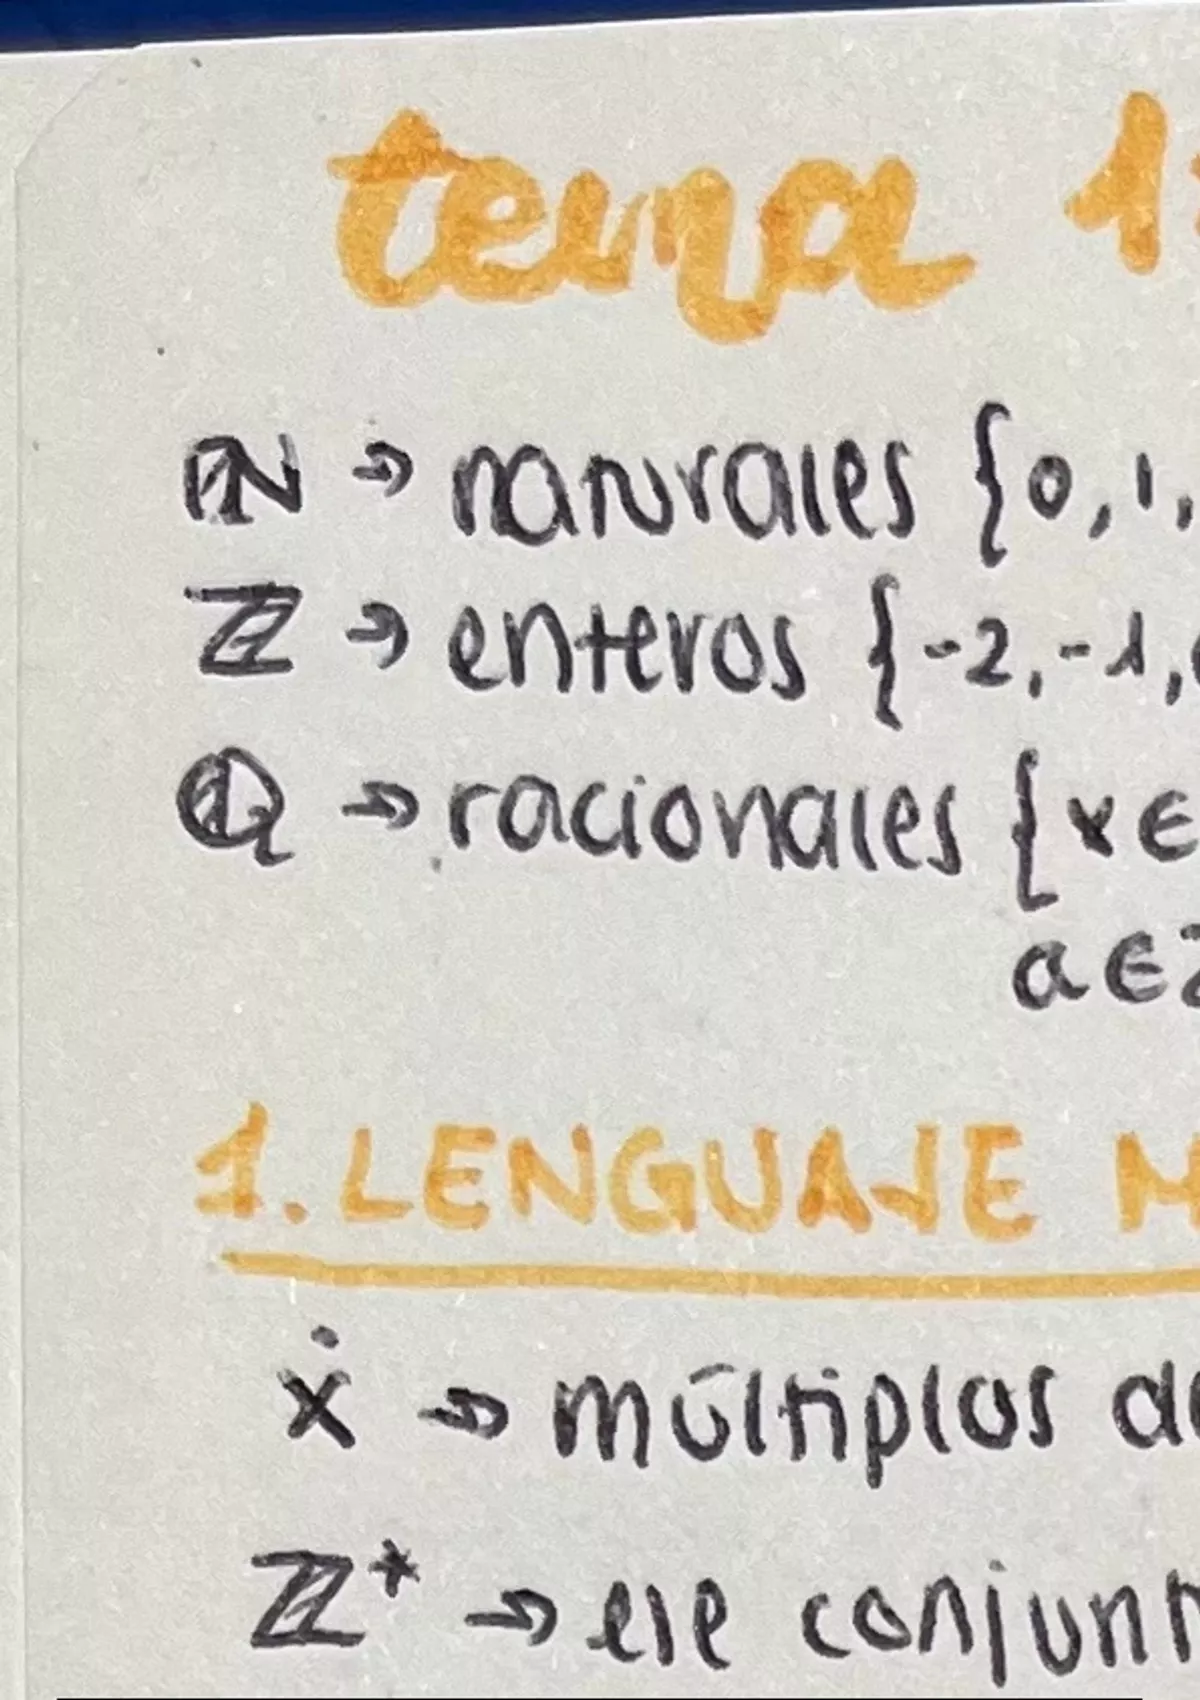 tema 1
ℕ → naturales {0, 1,
ℤ → enteros {-2, -1,
ℚ → racionales {x ∈
a ∈ ℤ
1. LENGUAJE M
ẋ → múltiplos de
ℤ* → ese conjunt